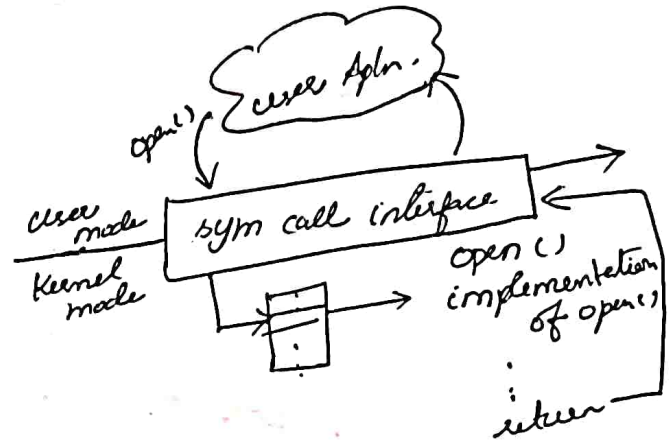 user Apln.
open()
user
mode
sym call interface
Kernel
mode
open()
implementation
of open()
return